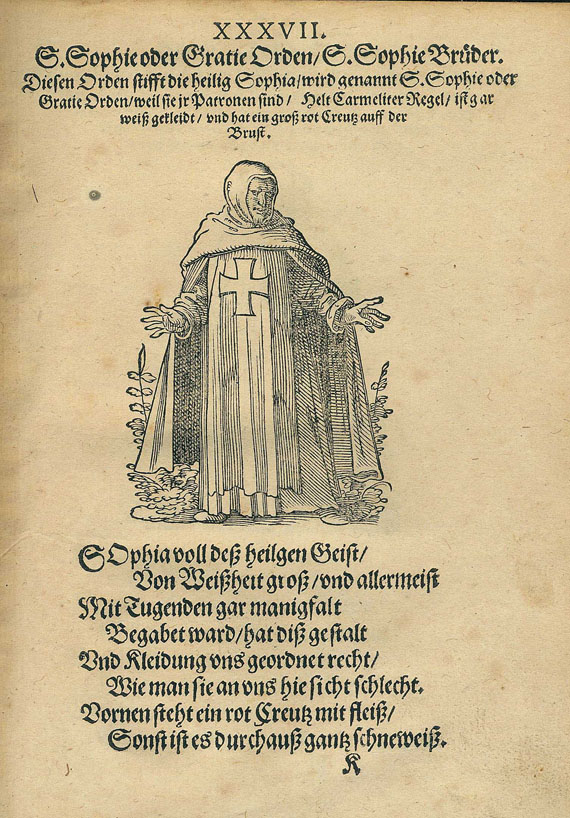 XXXVII.
S. Sophie oder Gratie Orden/ S. Sophie Brüder.
Diesen Orden stifft die heilig Sophia/ wird genannt S. Sophie oder
Gratie Orden/ weil sie jr Patronen sind/ Helt Carmeliter Regel/ ist gar
weiß gekleidt/ vnd hat ein groß rot Creutz auff der
Brust.
SOphia voll deß heilgen Geist/
Von Weißheit groß/ vnd allermeist
Mit Tugenden gar manigfalt
Begabet ward/ hat diß gestalt
Vnd Kleidung vns geordnet recht/
Wie man sie an vns hie sicht schlecht.
Vornen steht ein rot Creutz mit fleiß/
Sonst ist es durchauß gantz schneweiß.
K